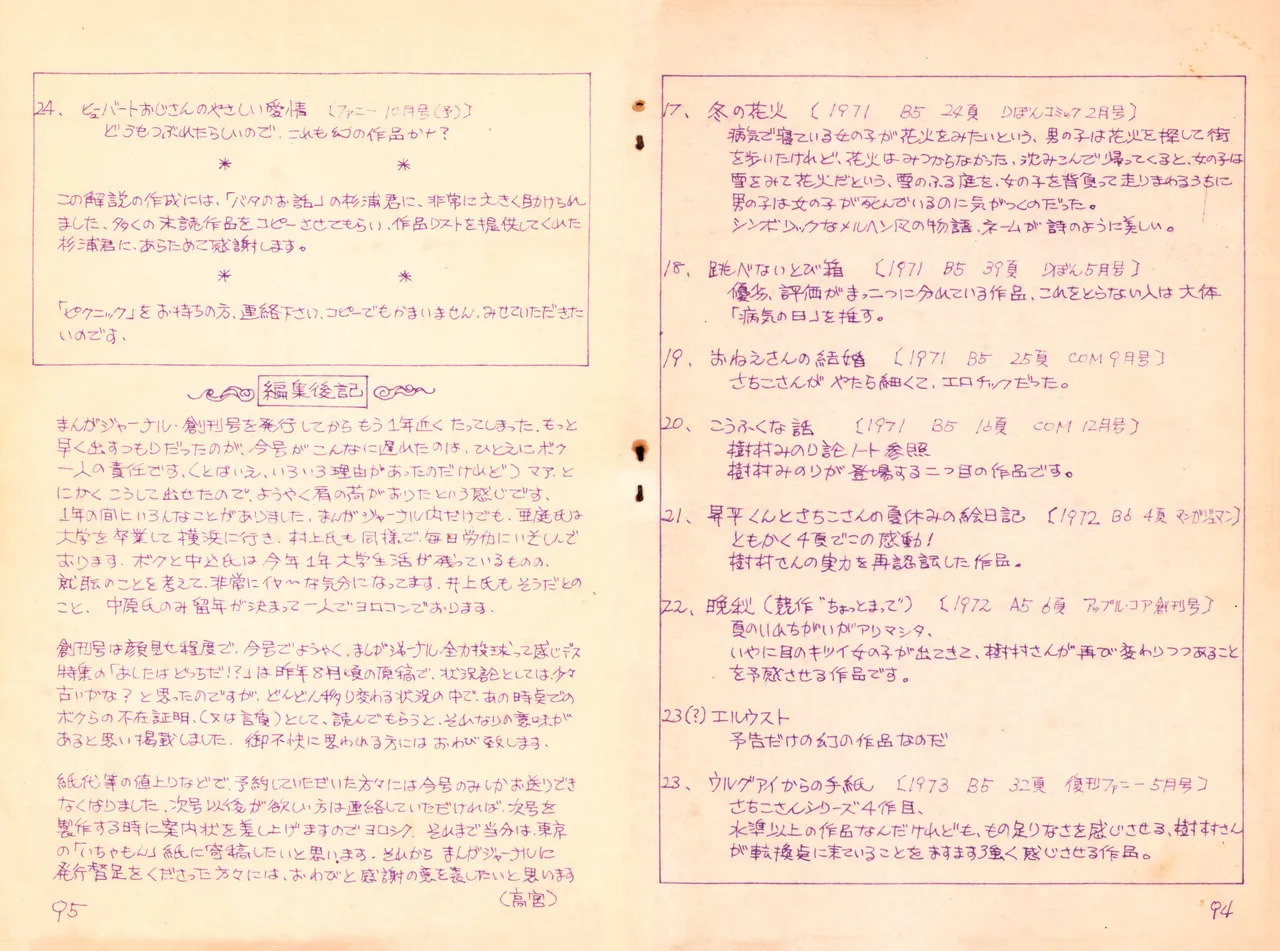 17、 冬の花火 〔1971 B5 24頁 りぼんコミック2月号〕
病気で寝ている女の子が花火をみたいという、男の子は花火を探して街
を歩いたけれど、花火はみつからなかった、沈みこんで帰ってくると、女の子は
雪をみて花火だという、雪のふる庭を、女の子を背負って走りまわるうちに
男の子は女の子が死んでいるのに気がつくのだった。
シンボリックなメルヘン風の物語、ネームが詩のように美しい。
18、 跳べないとび箱 〔1971 B5 39頁 りぼん5月号〕
優劣、評価がまっ二つに分れている作品、これをとらない人は大体
「病気の日」を推す。
19、 おねえさんの結婚 〔1971 B5 25頁 COM9月号〕
さちこさんがやたら細くて、エロチックだった。
20、 こうふくな話 〔1971 B5 16頁 COM12月号〕
樹村みのり論ノート参照
樹村みのりが登場する二つ目の作品です。
21、 昇平くんとさちこさんの夏休みの絵日記 〔1972 B6 4頁 マンガジュマン〕
ともかく4頁でこの感動!
樹村さんの実力を再認識した作品。
22、 晩秋 (競作“ちょっとまって”) 〔1972 A5 6頁 アップル・コア創刊号〕
頁のいれちがいがアリマシタ、
いやに目のキツイ女の子が出てきて、樹村さんが再び変わりつつあること
を予感させる作品です。
23(?) エルウスト
予告だけの幻の作品なのだ
23、 ウルグアイからの手紙 〔1973 B5 32頁 復刊ファニー5月号〕
さちこさんシリーズ4作目、
水準以上の作品なんだけれども、もの足りなさを感じさせる、樹村さん
が転換点に来ていることをますます強く感じさせる作品。
94
24、 ヒューバートおじさんのやさしい愛情 〔ファニー10月号(予)〕
どうもつぶれたらしいので、これも幻の作品かナ?
* *
この解説の作成には、「バタのお話」の杉浦君に、非常に大きく助けられ
ました、多くの未読作品をコピーさせてもらい、作品リストを提供してくれた
杉浦君に、あらためて感謝します。
* *
「ピクニック」をお持ちの方、連絡下さい、コピーでもかまいません、みせていただきた
いのです、
編集後記
まんがジャーナル・創刊号を発行してからもう1年近くたってしまった、もっと
早く出すつもりだったのが、今号がこんなに遅れたのは、ひとえにボク
一人の責任です、(とはいえ、いろいろ理由があったのだけれど) マア、と
にかくこうして出せたので、ようやく肩の荷がおりたという感じです、
1年の間にいろんなことがありました、まんがジャーナル内だけでも、亜庭氏は
大学を卒業して横浜に行き、村上氏も同様で、毎日労働にいそしんで
おります、ボクと中込氏は今年1年大学生活が残っているものの、
就職のことを考えて、非常にイヤ〜な気分になってます、井上氏もそうだとの
こと、中原氏のみ留年が決まって一人でヨロコンでおります、
創刊号は顔見せ程度で、今号でようやく、まんがジャーナル全力投球って感じデス
特集の「あしたはどっちだ!?」は昨年8月頃の原稿で、状況論としては少々
古いかな?と思ったのですが、どんどん移り変わる状況の中で、あの時点での
ボクらの不在証明、(又は言負)として、読んでもらうと、それなりの意味が
あると思い掲載しました、御不快に思われる方にはおわび致します、
紙代等の値上りなどで、予約していただいた方々には今号のみしかお送りでき
なくなりました、次号以後が欲しい方は連絡していただければ、次号を
製作する時に案内状を差し上げますのでヨロシク、それまで当分は、東京
の「いちゃもん」紙に寄稿したいと思います、それから まんがジャーナルに
発行督促をくださった方々には、おわびと感謝の意を表したいと思います
(高宮)
95